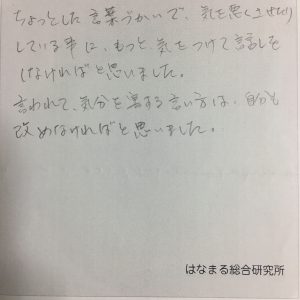 ちょっとした言葉づかいで、気を悪くさせたり
している事に、もっと気をつけて話しを
しなければと思いました。
言われて、気分を害する言い方は、自分も
改めなければと思いました。
はなまる総合研究所